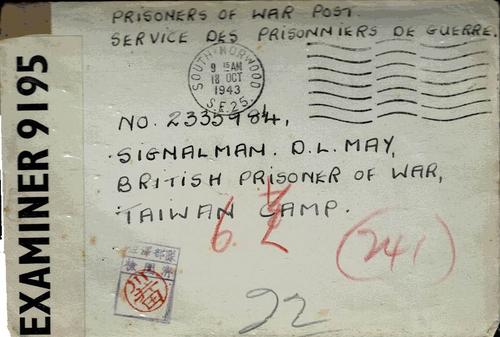 PRISONERS OF WAR POST.
SERVICE DES PRISONNIERS DE GUERRE.
SOUTH NORWOOD
9 15 AM
18 OCT
1943
S.E.25.
NO. 2335984,
SIGNALMAN. D.L. MAY,
BRITISH PRISONER OF WAR,
TAIWAN CAMP.
(241)
22
EXAMINER 9195